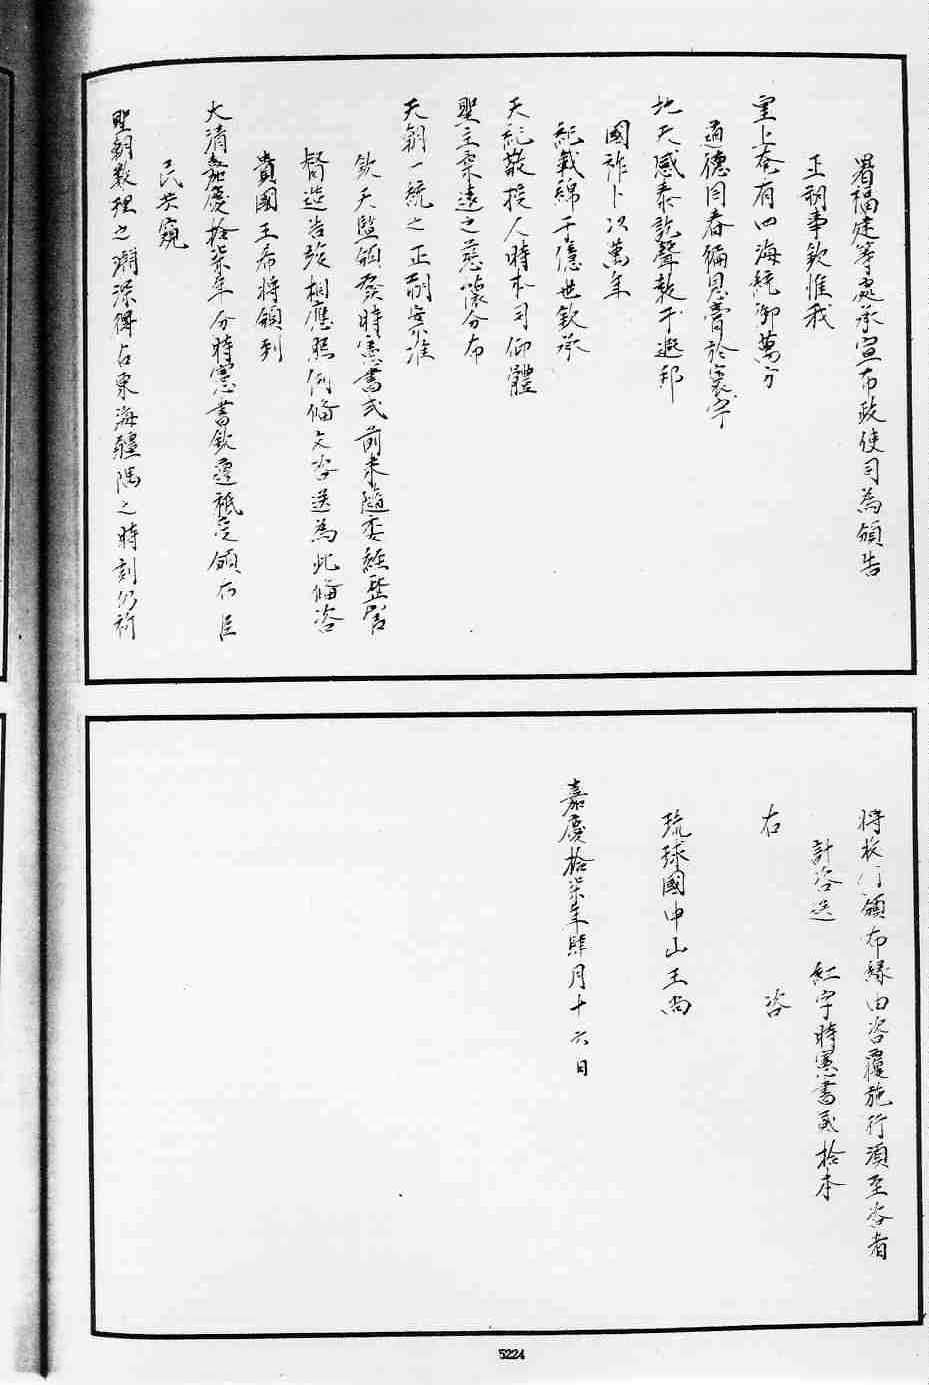 署福建等處承宣布政使司為頒告
正朔事欽惟我
皇上奄有四海統御萬方
道德同春徧恩膏於寰宇
地天感泰訖聲教于遐邦
國祚卜以萬年
紀載綿于億世欽承
天紀敬授人時本司仰體
聖主柔遠之慈懷分布
天朝一統之正朔案准
欽天監頒發時憲書式前來隨委經歷
督造告竣相應照例備文咨送為此備咨
貴國王希將頒到
大清嘉慶拾柒年分時憲書欽遵祗受頒布臣
民共窺
聖朝敷理之淵深傳占東海疆隅之時刻仍祈
將收頒布緣由咨覆施行須至咨者
計咨送 紅字時憲書貳拾本
右 咨
琉球國中山王尚
嘉慶拾柒年肆月十六日
5224